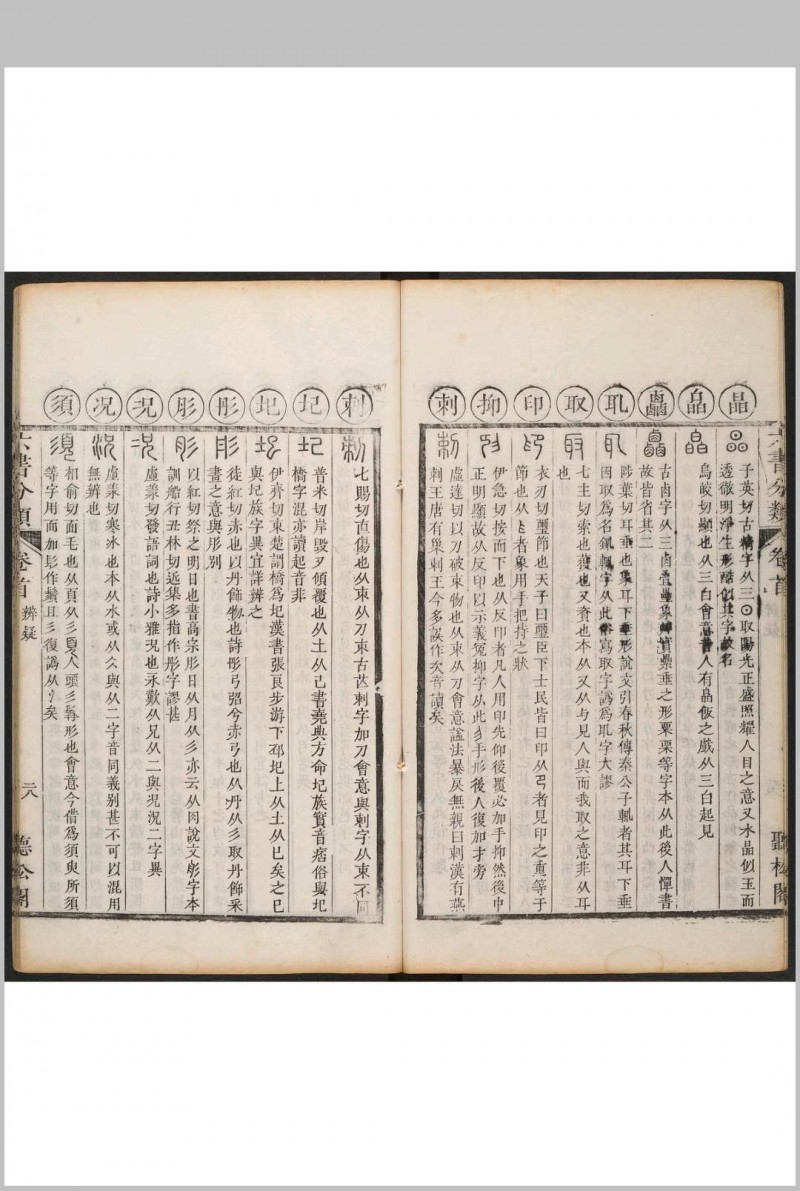 晶
子英切古精字从三〇取陽光正盛照耀人目之意又水晶似玉而
透徹明淨生形酷似其字故名
皛
烏皎切顯也从三白會意書人有皛飯之戲从三白起見
古卤字从三卤
垂之形粟栗等字本从此後人憚書
故皆省其二
耴
陟葉切耳垂也象耳下垂形說文引春秋傳秦公子輒者其耳下垂
因取爲名
寫取字譌爲耴字大謬
取
七主切索也獲也又資也本从又从与見人與而我取之意非从耳
也
印
衣刃切璽節也天子曰璽臣下士民皆曰印从爪者見印之重等于
節也从
者象用手把持之狀
抑
伊急切按而下也从反印者凡人用印先仰後覆必加手抑然後中
正明顯故从反印以示義冤抑字从此
手形後人復加才旁
剌
盧達切以刀破束物也从束从刀會意諡法暴戾無親曰剌漢有燕
剌王唐有巢剌王今多誤作次音讀矣
刺
七賜切直傷也从朿从刀朿古
刺字加刀會意與剌字从束不同
圮
普米切岸毀歹傾覆也从土从己書堯典方命圮族實音痞俗與圯
橋字混亦讀起音非
圯
伊齊切東楚謂橋爲圯漢書張良步游下邳圯上从土从巳矣之巳
與圮族字異宜詳辨之
彤
徒紅切赤也以丹飾物也詩彤弓弨兮赤弓也从丹从彡取丹飾采
畫之意與肜別
肜
以紅切祭之明日也書高宗肜日从月从彡亦云从肉說文肜字本
訓船行丑林切近集多指作彤字謬甚
况
虛業切發語詞也詩小雅况也永歎从兄从二與況況二字異
況
虛業切寒冰也本从水或从仌與从二字音同義别甚不可以混用
無辨也
須
相俞切面毛也从頁从彡頁人頭彡髯形也會意今借爲須臾所須
等字用而加髟作鬚且彡復譌从氵矣
六書分類 卷首 辨疑 二八 聽松閣